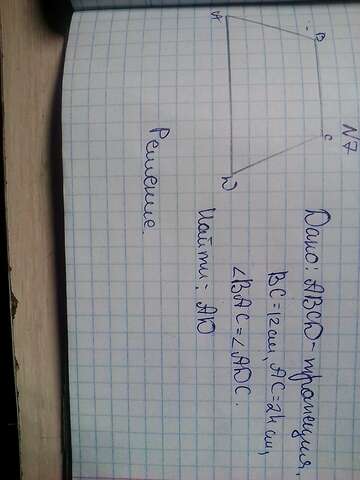 N7
A
B
C
D
Дано: ABCD - трапеция,
BC = 12 см, AC = 24 см,
∠BAC = ∠ADC.
Найти: AD
Решение.